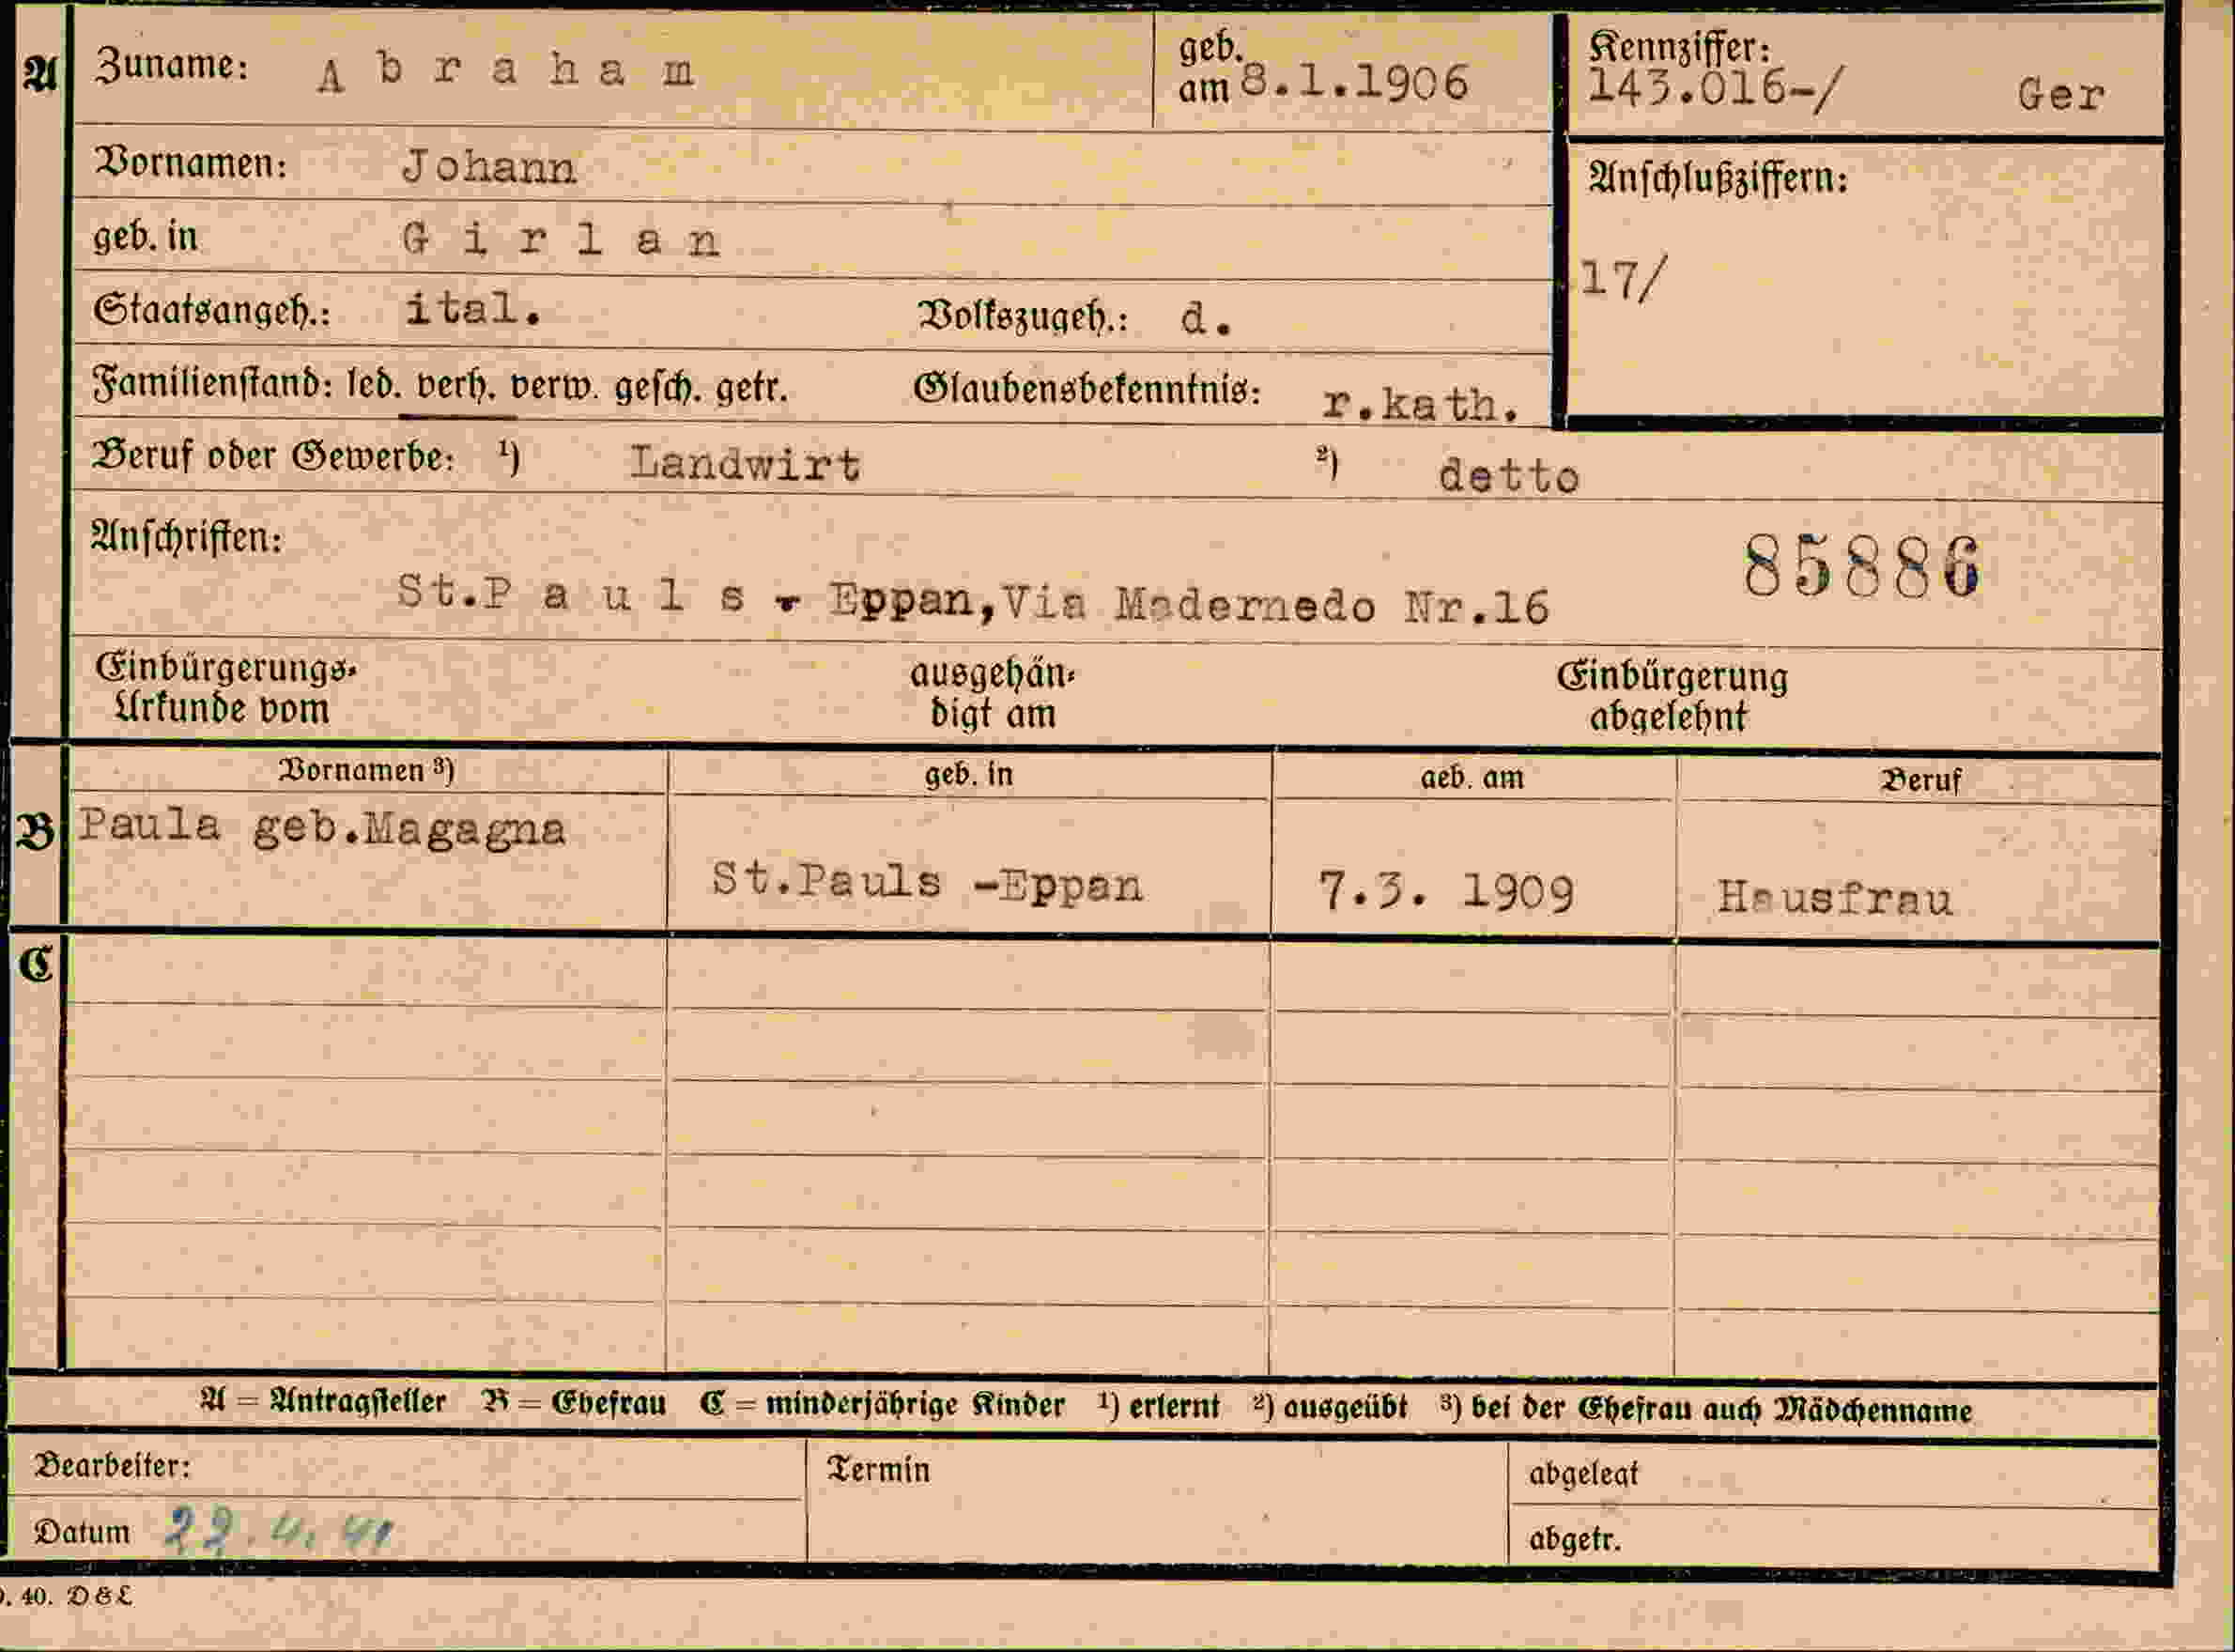 A Zuname: Abraham geb. am 8.1.1906 Kennziffer: 143.016-/ Ger
Vornamen: Johann Anschlußziffern:
geb. in Girlan 17/
Staatsangeh.: ital. Volkszugeh.: d.
Familienstand: led. verh. verw. gesch. getr. Glaubensbekenntnis: r.kath.
Beruf oder Gewerbe: ¹) Landwirt ²) detto
Anschriften: 85886
St.Pauls - Eppan, Via Madernedo Nr.16
Einbürgerungs- ausgehän- Einbürgerung
Urkunde vom digt am abgelehnt
Vornamen ³) geb. in geb. am Beruf
B Paula geb.Magagna
St.Pauls -Eppan 7.3. 1909 Hausfrau
C
A = Antragsteller B = Ehefrau C = minderjährige Kinder ¹) erlernt ²) ausgeübt ³) bei der Ehefrau auch Mädchenname
Bearbeiter: Termin abgelegt
Datum 22.4.41 abgetr.
40. D&L